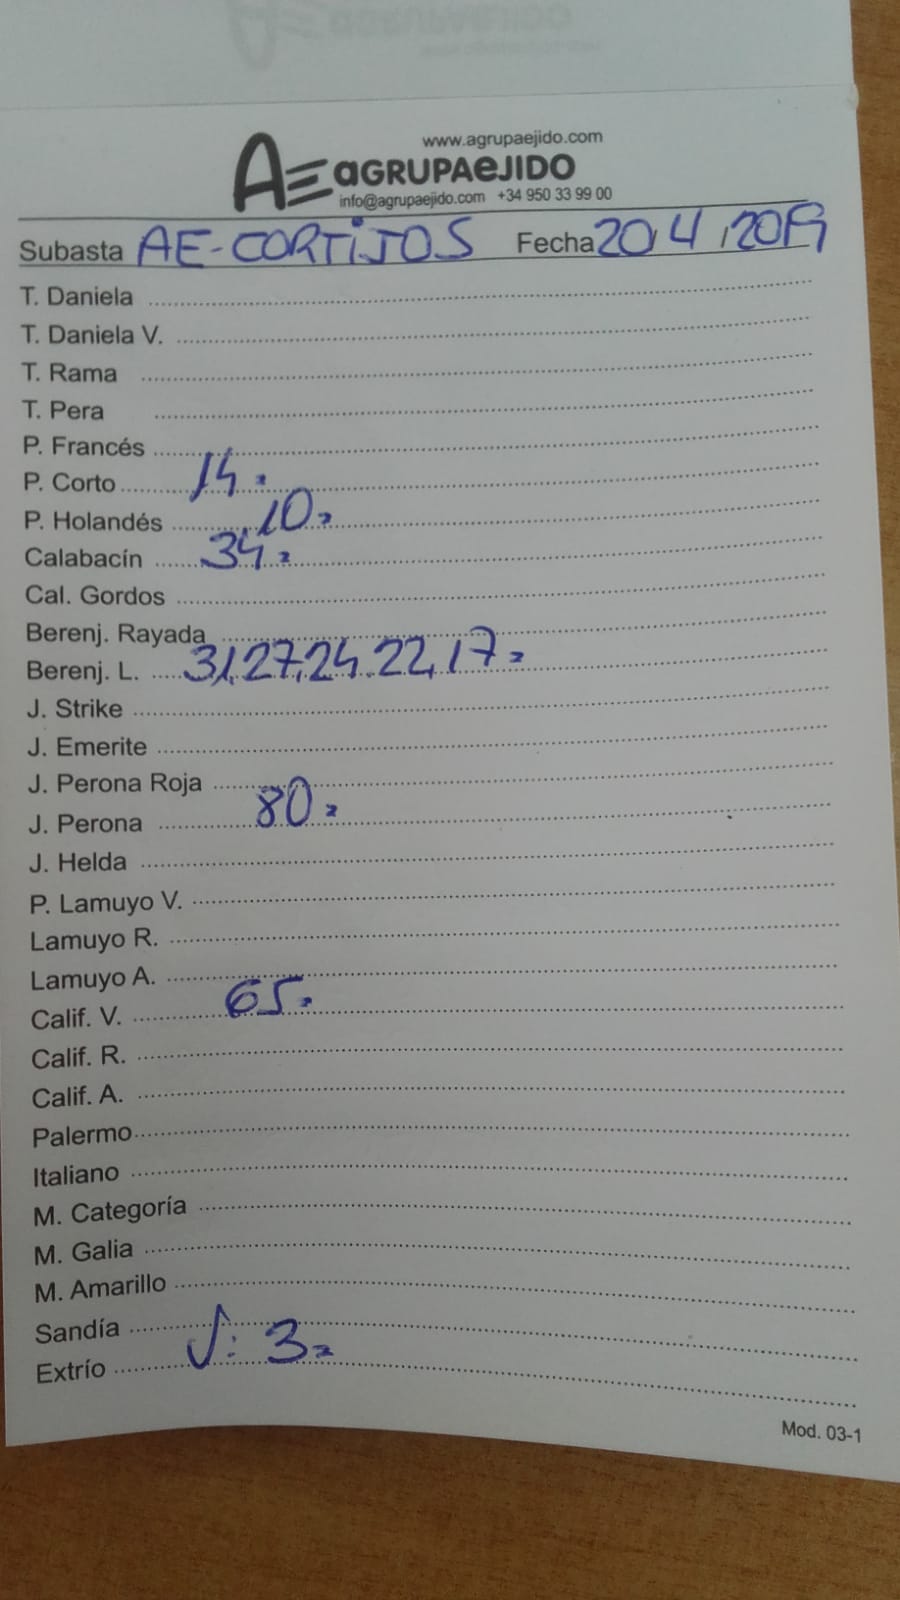 www.agrupaejido.com
AE aGRUPAeJIDO
info@agrupaejido.com +34 950 33 99 00
Subasta AE-CORTIJOS Fecha 20/4/2019
T. Daniela
T. Daniela V.
T. Rama
T. Pera
P. Francés
P. Corto 14.
P. Holandés 10.
Calabacín 34.
Cal. Gordos
Berenj. Rayada
Berenj. L. 31,27,24.22,17.
J. Strike
J. Emerite
J. Perona Roja
J. Perona 80.
J. Helda
P. Lamuyo V.
Lamuyo R.
Lamuyo A.
Calif. V. 65.
Calif. R.
Calif. A.
Palermo
Italiano
M. Categoría
M. Galia
M. Amarillo
Sandía
Extrío : 3.
Mod. 03-1